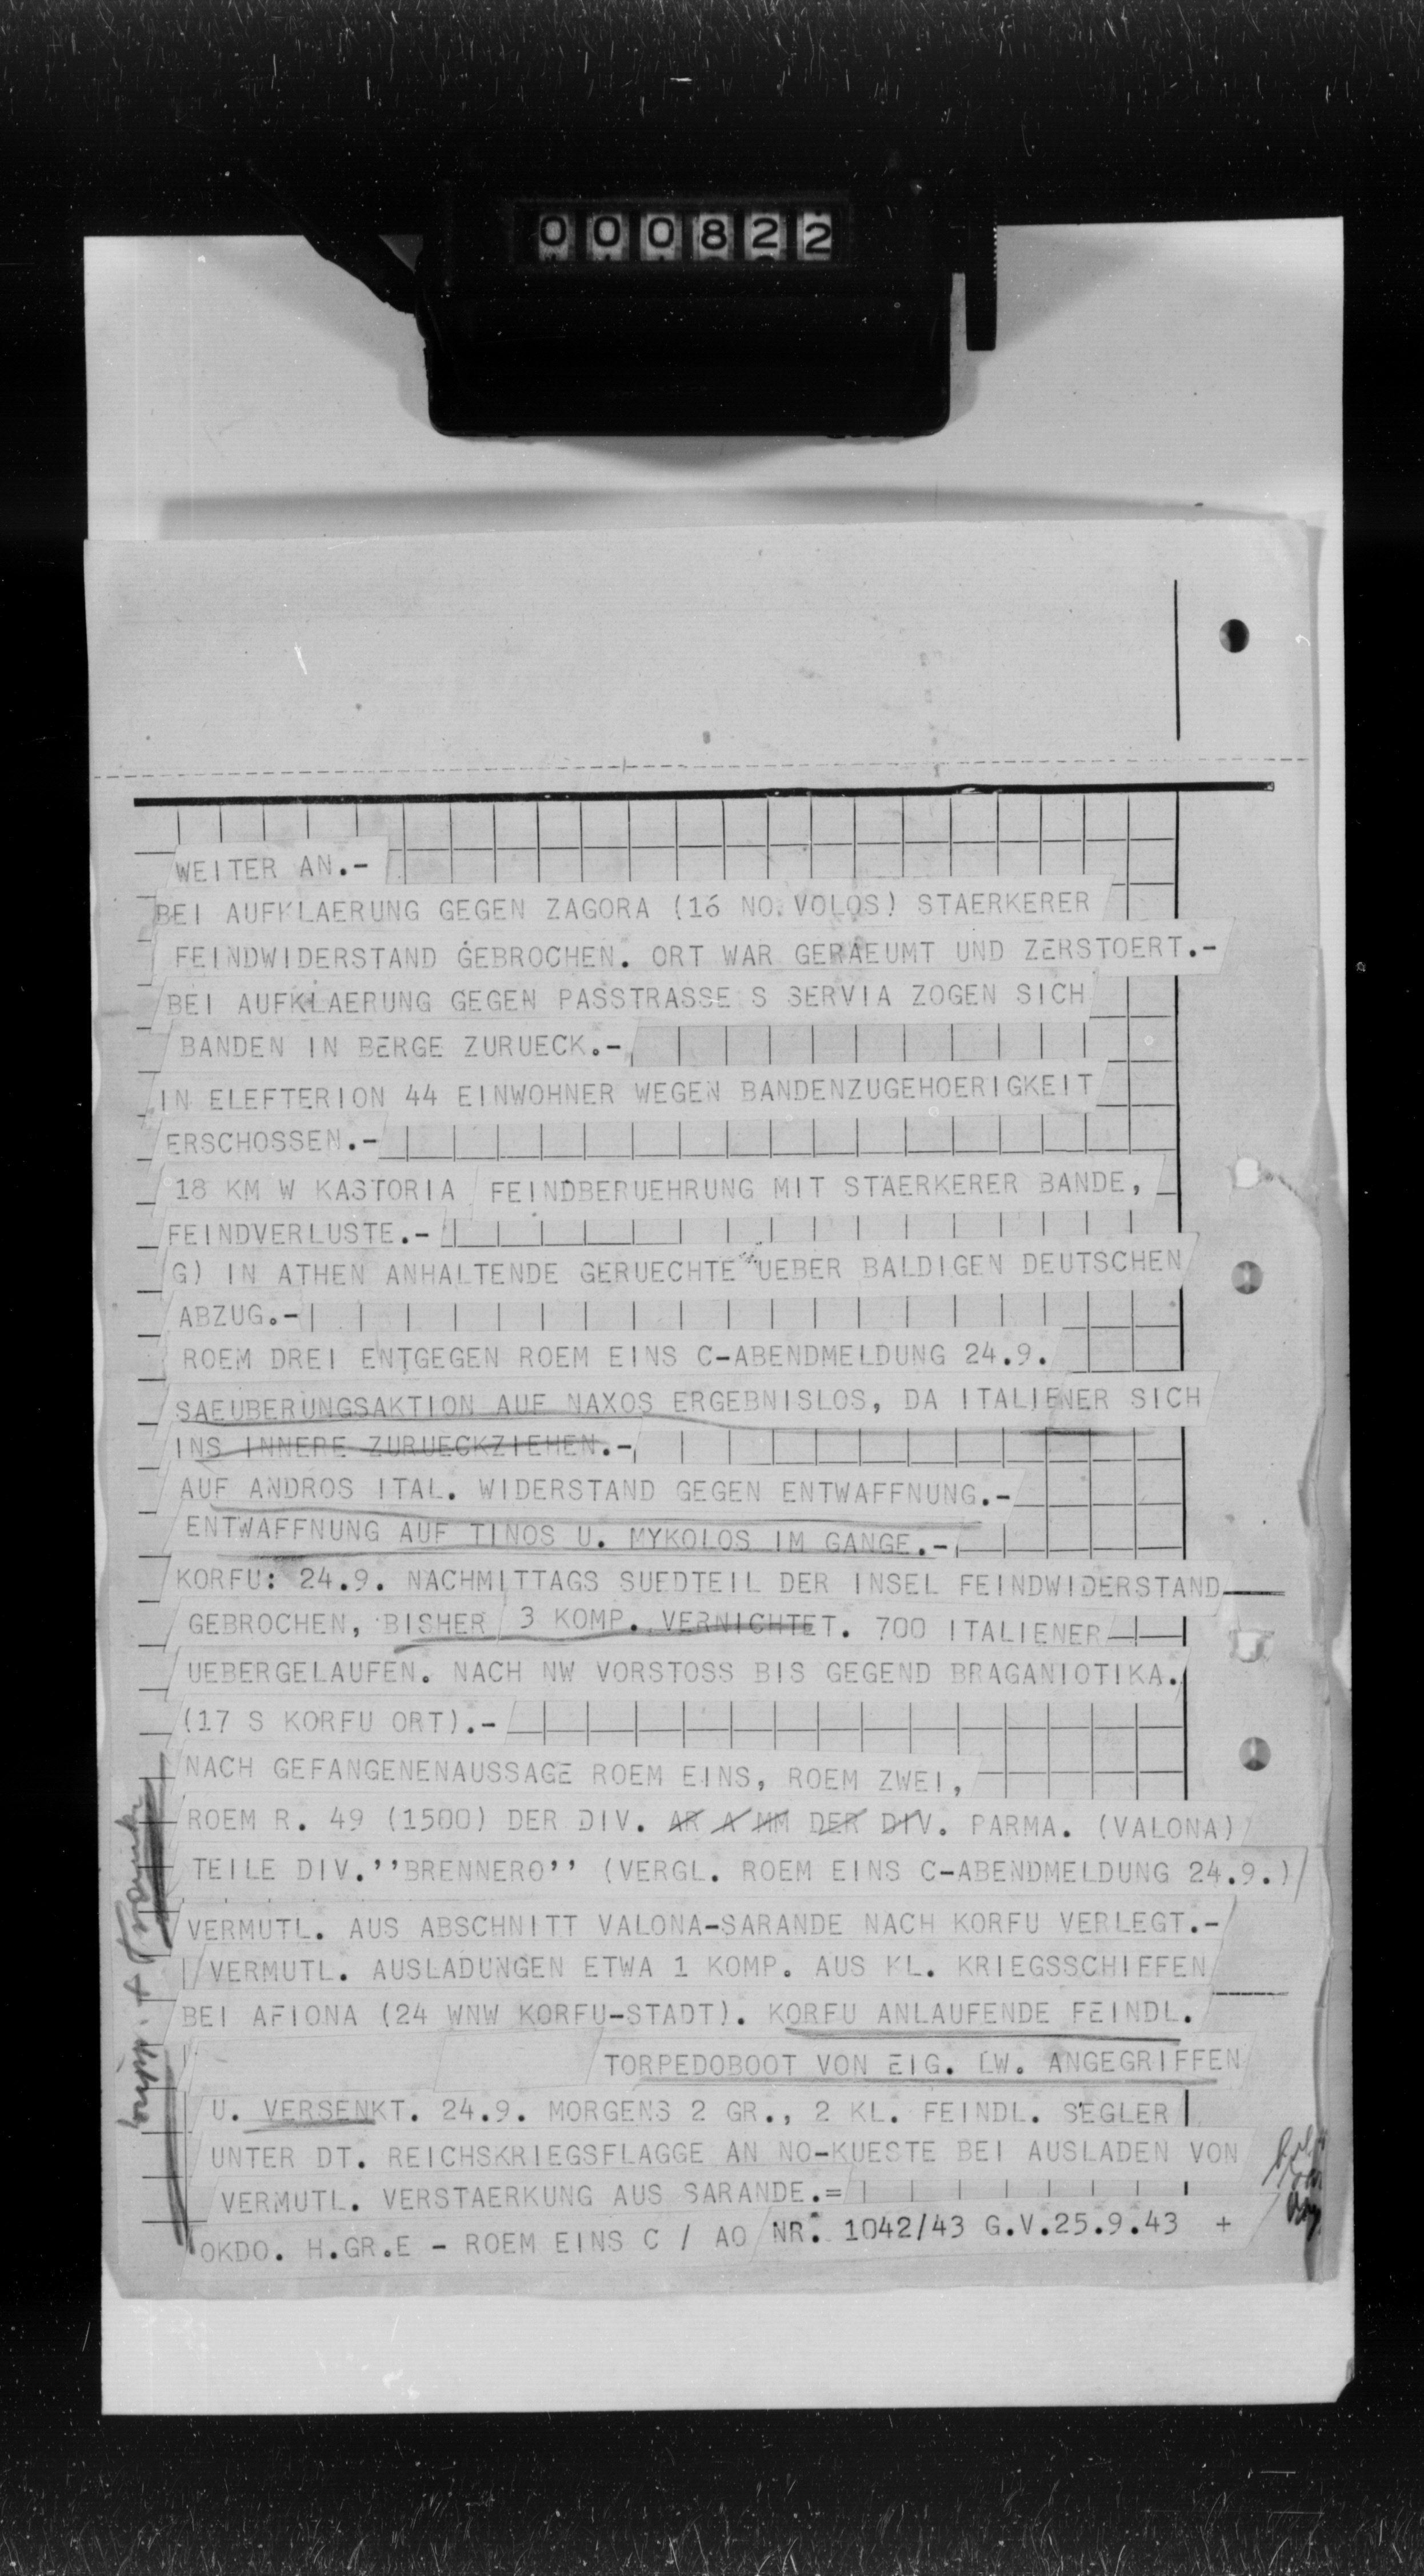 000822
WEITER AN.-
BEI AUFKLAERUNG GEGEN ZAGORA (16 NO. VOLOS) STAERKERER
FEINDWIDERSTAND GEBROCHEN. ORT WAR GERAEUMT UND ZERSTOERT.-
BEI AUFKLAERUNG GEGEN PASSTRASSE S SERVIA ZOGEN SICH
BANDEN IN BERGE ZURUECK.-
IN ELEFTERION 44 EINWOHNER WEGEN BANDENZUGEHOERIGKEIT
ERSCHOSSEN.-
18 KM W KASTORIA FEINDBERUEHRUNG MIT STAERKERER BANDE,
FEINDVERLUSTE.-
G) IN ATHEN ANHALTENDE GERUECHTE UEBER BALDIGEN DEUTSCHEN
ABZUG.-
ROEM DREI ENTGEGEN ROEM EINS C-ABENDMELDUNG 24.9.
SAEUBERUNGSAKTION AUF NAXOS ERGEBNISLOS, DA ITALIENER SICH
INS INNERE ZURUECKZIEHEN.-
AUF ANDROS ITAL. WIDERSTAND GEGEN ENTWAFFNUNG.-
ENTWAFFNUNG AUF TINOS U. MYKOLOS IM GANGE.-
KORFU: 24.9. NACHMITTAGS SUEDTEIL DER INSEL FEINDWIDERSTAND
GEBROCHEN, BISHER 3 KOMP. VERNICHTET. 700 ITALIENER
UEBERGELAUFEN. NACH NW VORSTOSS BIS GEGEND BRAGANIOTIKA.
(17 S KORFU ORT).-
NACH GEFANGENENAUSSAGE ROEM EINS, ROEM ZWEI,
ROEM R. 49 (1500) DER DIV. AR A MM DER DIV. PARMA. (VALONA)
TEILE DIV.''BRENNERO'' (VERGL. ROEM EINS C-ABENDMELDUNG 24.9.)
VERMUTL. AUS ABSCHNITT VALONA-SARANDE NACH KORFU VERLEGT.-
VERMUTL. AUSLADUNGEN ETWA 1 KOMP. AUS KL. KRIEGSSCHIFFEN
BEI AFIONA (24 WNW KORFU-STADT). KORFU ANLAUFENDE FEINDL.
TORPEDOBOOT VON EIG. LW. ANGEGRIFFEN
U. VERSENKT. 24.9. MORGENS 2 GR., 2 KL. FEINDL. SEGLER
UNTER DT. REICHSKRIEGSFLAGGE AN NO-KUESTE BEI AUSLADEN VON
VERMUTL. VERSTAERKUNG AUS SARANDE.=
OKDO. H.GR.E - ROEM EINS C / AO NR. 1042/43 G.V.25.9.43 +